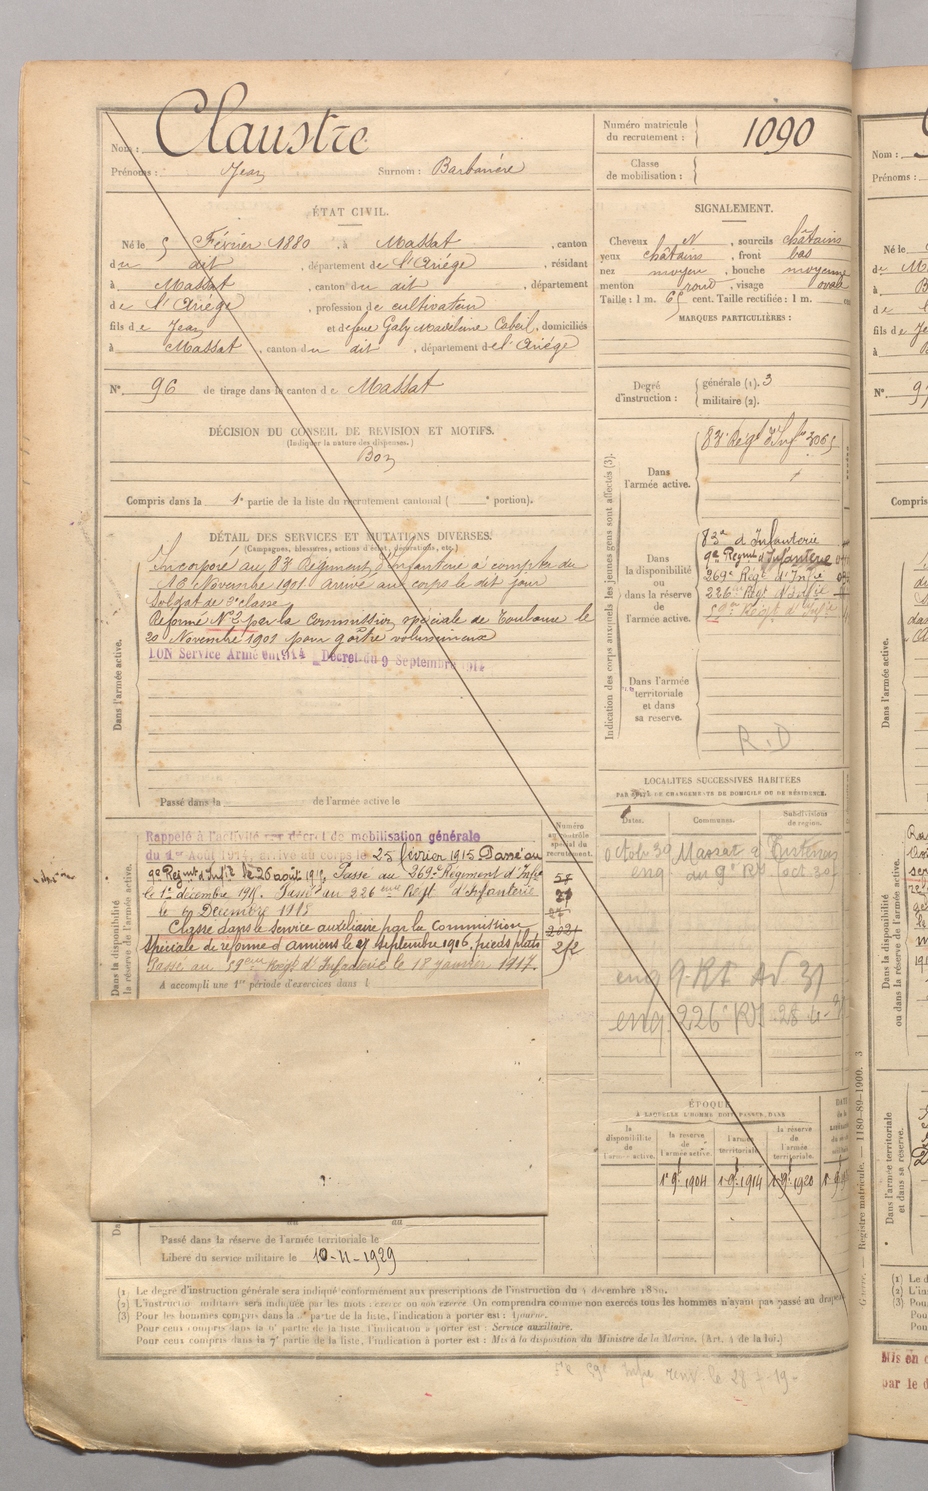 Nom : Claustre
Prénoms : Jean Surnom : Barbanère
Numéro matricule du recrutement : 1090
Classe de mobilisation :
ÉTAT CIVIL.
Né le 5 Février 1880, à Massat, canton
du dit, département de l'Ariège, résidant
à Massat, canton du dit, département
de l'Ariège, profession de cultivateur
fils de Jean et de feue Galy Madeleine Cabeil, domiciliés
à Massat, canton du dit, département de l'Ariège
N° 96 de tirage dans le canton de Massat
SIGNALEMENT.
Cheveux N, sourcils châtains
yeux châtains, front bas
nez moyen, bouche moyenne
menton rond, visage ovale
Taille : 1 m. 65 cent. Taille rectifiée : 1 m. cent
MARQUES PARTICULIÈRES :
Degré d'instruction : générale (1). 3
militaire (2).
DÉCISION DU CONSEIL DE REVISION ET MOTIFS.
(Indiquer la nature des dispenses.)
Bon
Compris dans la 1e partie de la liste du recrutement cantonal ( e portion).
DÉTAIL DES SERVICES ET MUTATIONS DIVERSES.
(Campagnes, blessures, actions d'éclat, décorations, etc.)
Dans l'armée active.
Incorporé au 83e Régiment d'Infanterie à compter du
16 Novembre 1901. Arrivé au corps le dit jour
Soldat de 2e classe
Réformé N° 2 par la Commission spéciale de Toulouse le
20 Novembre 1901 pour goître volumineux
BON Service Armé en 1914 Décret du 9 Septembre 1914
Passé dans la de l'armée active le
Indication des corps auxquels les jeunes gens sont affectés (3).
Dans l'armée active.
83e Régt d'Infie 3065
Dans la disponibilité ou dans la réserve de l'armée active.
83e d'Infanterie
9e Regmt d'Infanterie
269e Régt d'Infie
226e Régt d'Infie
59e Régt d'Infie
Dans l'armée territoriale et dans sa réserve.
R.D
LOCALITÉS SUCCESSIVES HABITÉES
PAR SUITE DE CHANGEMENTS DE DOMICILE OU DE RÉSIDENCE.
Dates. Communes. Subdivisions de région.
eng 9 RI
eng 226e RI
Dans la disponibilité ou dans la réserve de l'armée active.
Numéro au contrôle spécial du recrutement.
Rappelé à l'activité par décret de mobilisation générale
du 1er Août 1914, arrivé au corps le 25 février 1915 Passé au
9e Régmt d'Infie le 26 août 1915, Passé au 269e Régiment d'Infie
le 1er décembre 1915. Passé au 226eme Régt d'Infanterie
le Décembre 1915
Classé dans le service auxiliaire par la Commission
Spéciale de réforme d'Amiens le 27 septembre 1916, pieds plats
Passé au 59eme Régt d'Infanterie le 18 janvier 1917.
A accompli une 1re période d'exercices dans l
ÉPOQUE
A LAQUELLE L'HOMME DOIT PASSER DANS
la disponibilité de l'armée active.
la réserve de l'armée active.
l'armée territoriale.
la réserve de l'armée territoriale.
1er 9bre 1904 1er 9bre 1914 1er 9bre 1920
du
Passé dans la réserve de l'armée territoriale le
Libéré du service militaire le 10-11-1929
(1) Le degré d'instruction générale sera indiqué conformément aux prescriptions de l'instruction du 4 décembre 1889.
(2) L'instruction militaire sera indiquée par les mots : exercé ou non exercé. On comprendra comme non exercés tous les hommes n'ayant pas passé au drapeau
(3) Pour les hommes compris dans la partie de la liste, l'indication à porter est : Ajourné.
Pour ceux compris dans la partie de la liste, l'indication à porter est : Service auxiliaire.
Pour ceux compris dans la 7e partie de la liste, l'indication à porter est : Mis à la disposition du Ministre de la Marine. (Art. 4 de la loi.)
Registre matricule. — 1180-89-1900. 3
Nom :
Prénoms :
Né le
fils de
N° 9
Compris
Dans l'armée active.
Dans la disponibilité ou dans la réserve de l'armée active.
Dans l'armée territoriale et dans sa réserve.
(1) Le d
(2) L'ins
(3) Pour
Pou
Pou
Mis en
par le d